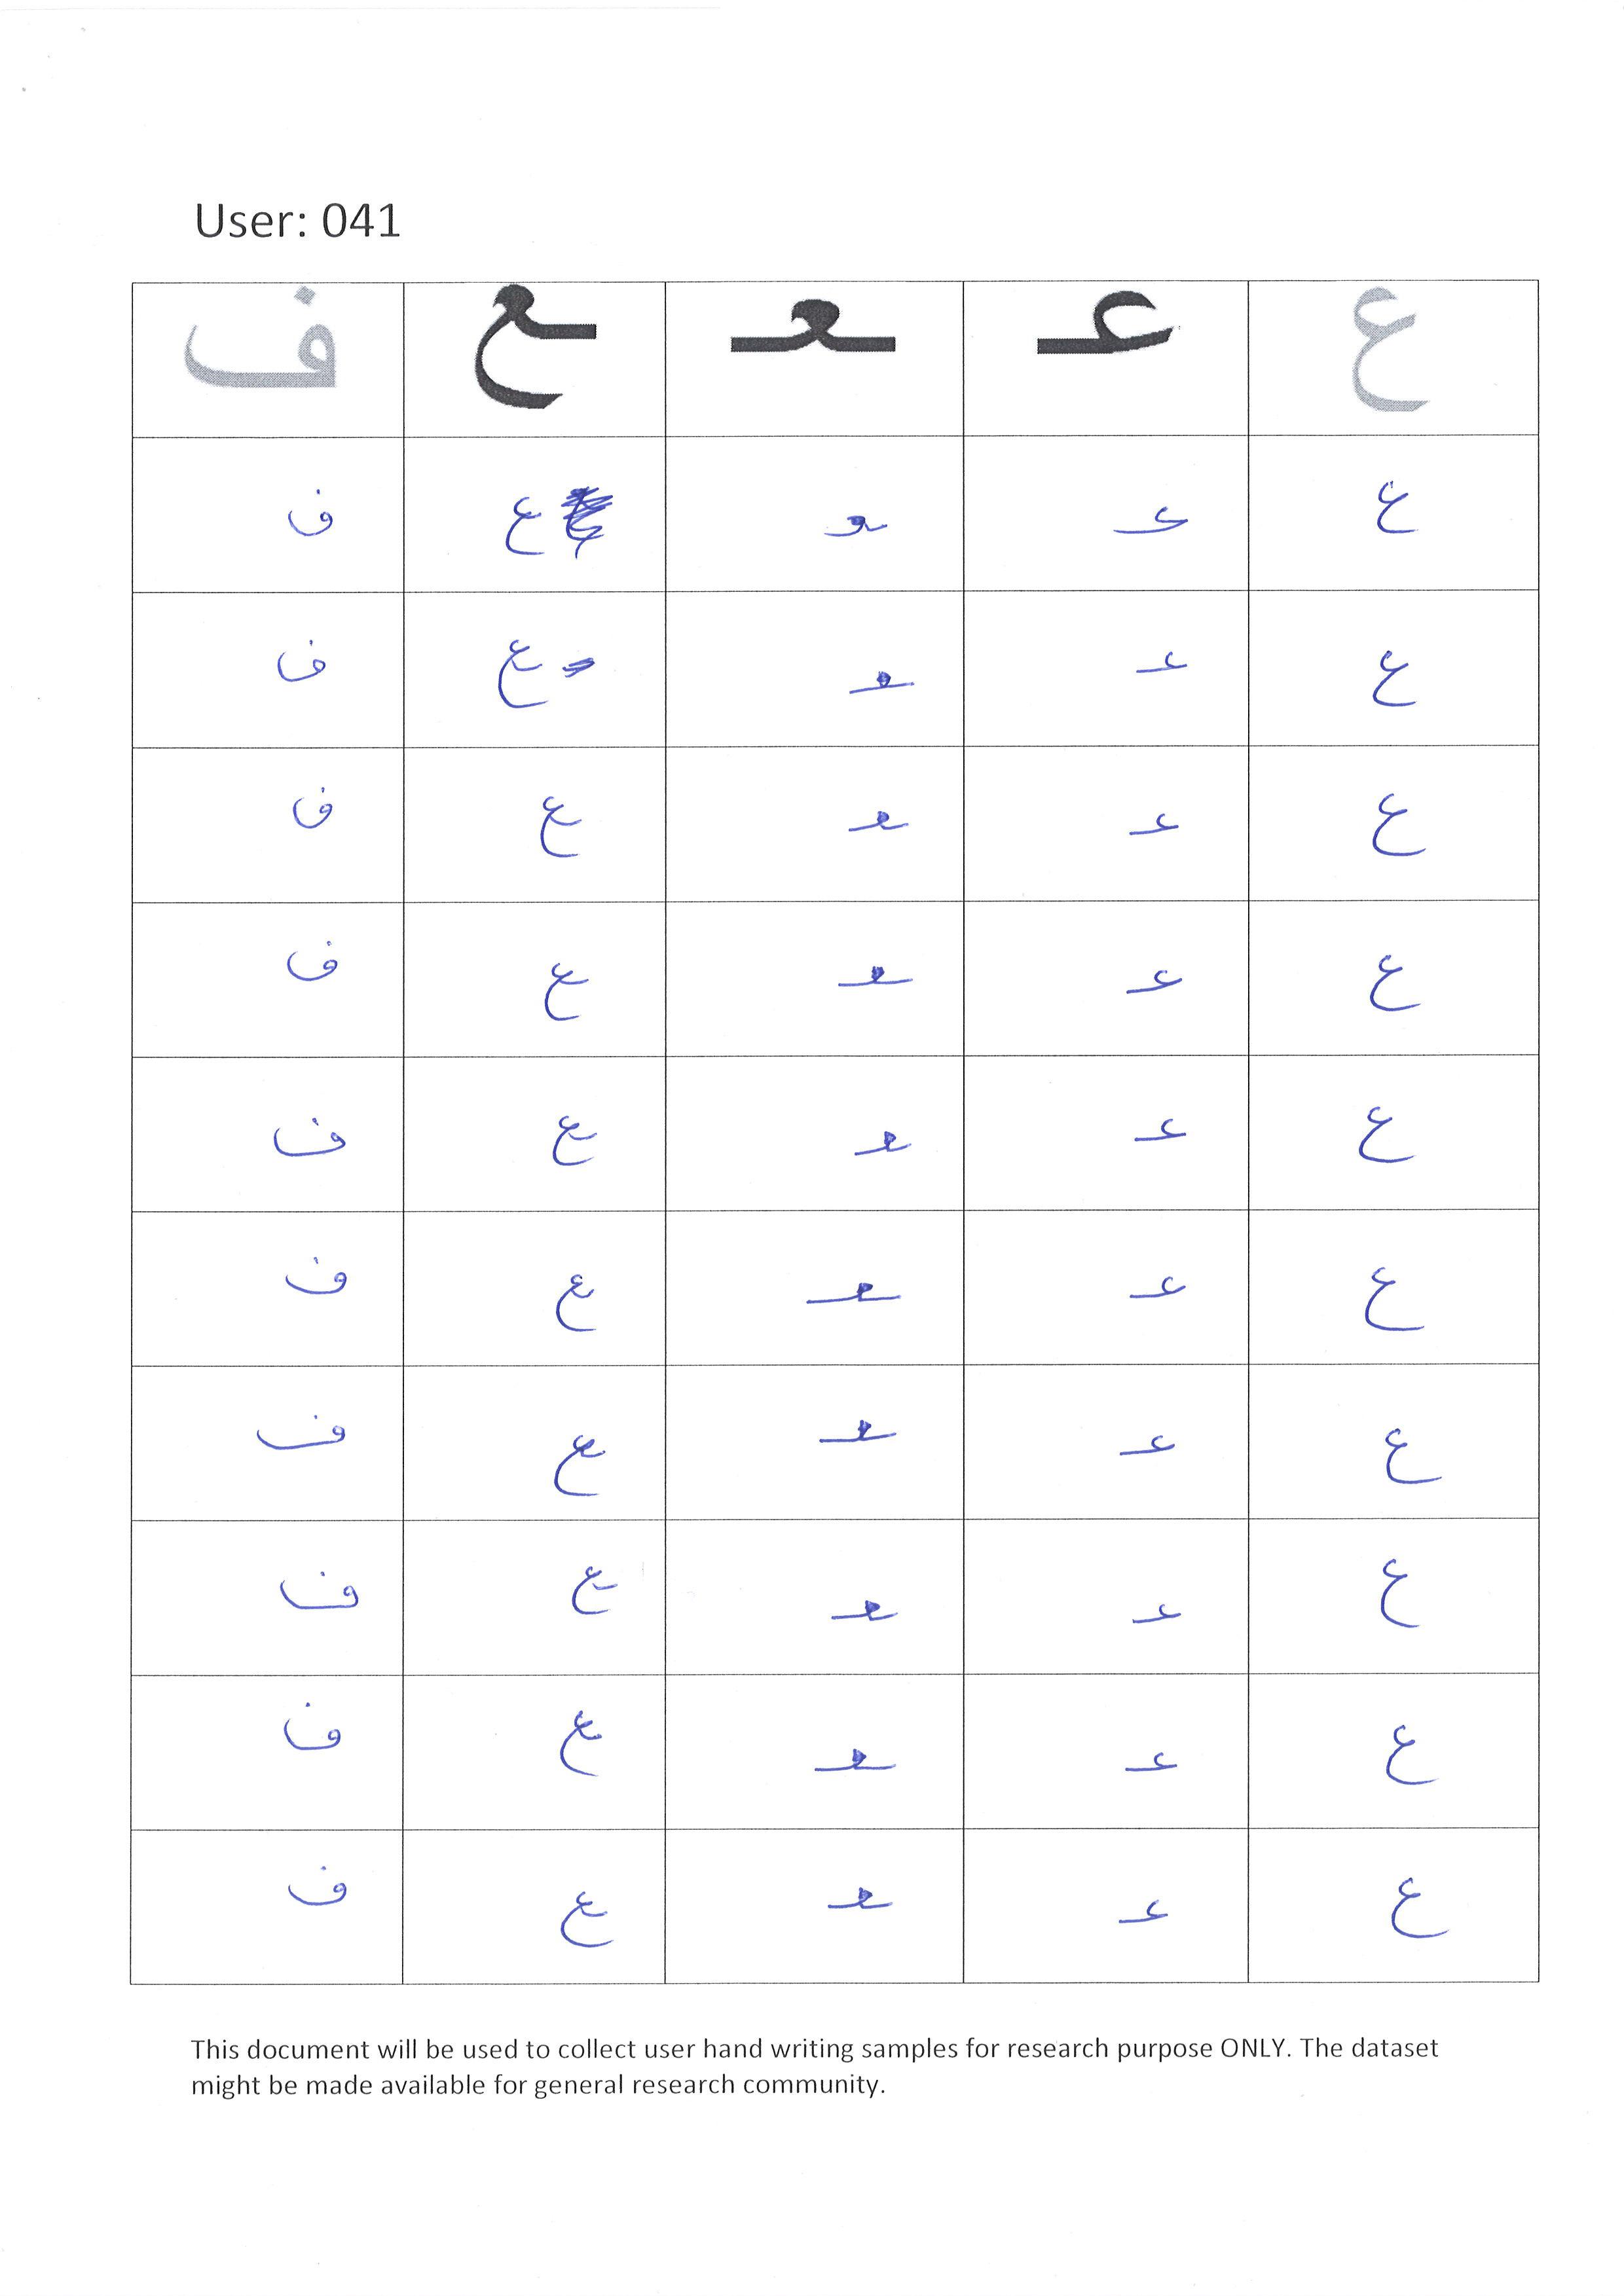 User: 041
ع عـ ـعـ ـع ف
ع عـ ـعـ ع ف
ع عـ ـعـ ـع ف
ع عـ ـعـ ـع ف
ع عـ ـعـ ـع ف
ع عـ ـعـ ـع ف
ع عـ ـعـ ـع ف
ع عـ ـعـ ـع ف
ع عـ ـعـ ـع ف
ع عـ ـعـ ـع ف
ع عـ ـعـ ـع ف
This document will be used to collect user hand writing samples for research purpose ONLY. The dataset
might be made available for general research community.